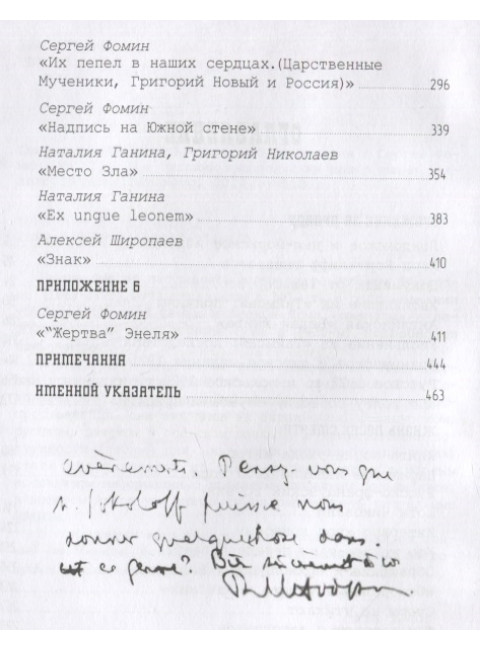 Сергей Фомин
«Их пепел в наших сердцах.(Царственные
Мученики, Григорий Новый и Россия)» 296
Сергей Фомин
«Надпись на Южной стене» 339
Наталия Ганина, Григорий Николаев
«Место Зла» 354
Наталия Ганина
«Ex ungue leonem» 383
Алексей Широпаев
«Знак» 410
ПРИЛОЖЕНИЕ 6
Сергей Фомин
«“Жертва” Энеля» 411
ПРИМЕЧАНИЯ 444
ИМЕННОЙ УКАЗАТЕЛЬ 463
Pensez-vous que
puisse nous
donner quelquechose dans
ce genre? Bien sincèrement à vous